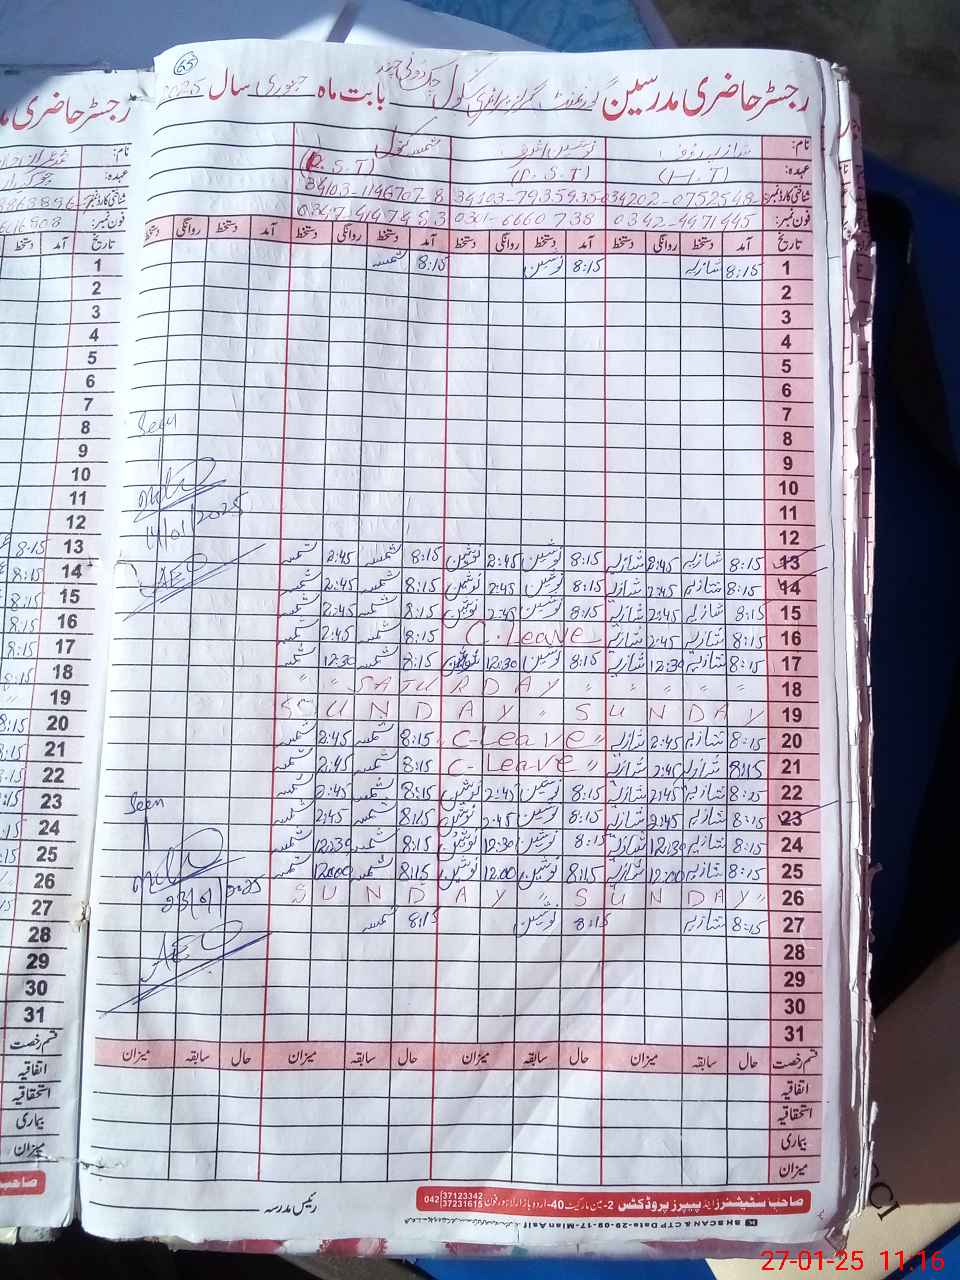 65
رجسٹر حاضری مدرسین گورنمنٹ گرلز پرائمری سکول بابت ماہ جنوری سال 2025
نام: شازیہ نوشین اشرف شمسہ کنول
عہدہ: (H.T) (P.S.T) (P.S.T)
شناختی کارڈ نمبر:
فون نمبر: 0342-4471445 0301-6660738
تاریخ آمد دستخط روانگی دستخط آمد دستخط روانگی دستخط آمد دستخط روانگی دستخط آمد دستخط روانگی دستخط
1 8:15 شازیہ 8:15 نوشین 8:15 شمسہ
2
3
4
5
6
7
8
9
10
11
12
13 8:15 شازیہ 2:45 شازیہ 8:15 نوشین 2:45 نوشین 8:15 شمسہ 2:45 شمسہ
14 8:15 شازیہ 2:45 شازیہ 8:15 نوشین 2:45 نوشین 8:15 شمسہ 2:45 شمسہ
15 8:15 شازیہ 2:45 شازیہ 8:15 نوشین 2:45 نوشین 8:15 شمسہ 2:45 شمسہ
16 8:15 شازیہ 2:45 شازیہ C.Leave 8:15 شمسہ 2:45 شمسہ
17 8:15 شازیہ 12:30 شازیہ 8:15 نوشین 12:30 نوشین 8:15 شمسہ 12:30 شمسہ
18 " " " " " SATURDAY " "
19 SUNDAY " SUNDAY
20 8:15 شازیہ 2:45 شازیہ "C-Leave" 8:15 شمسہ 2:45 شمسہ
21 8:15 شازیہ 2:45 شازیہ C-Leave" 8:15 شمسہ 2:45 شمسہ
22 8:15 شازیہ 2:45 شازیہ 8:15 نوشین 2:45 نوشین 8:15 شمسہ 2:45 شمسہ
23 8:15 شازیہ 2:45 شازیہ 8:15 نوشین 2:45 نوشین 8:15 شمسہ 2:45 شمسہ
24 8:15 شازیہ 12:30 شازیہ 8:15 نوشین 12:30 نوشین 8:15 شمسہ 12:30 شمسہ
25 8:15 شازیہ 12:00 شازیہ 8:15 نوشین 12:00 نوشین 8:15 شمسہ 12:00 شمسہ
26 SUNDAY " SUNDAY"
27 8:15 شازیہ 8:15 نوشین 8:15 شمسہ
28
29
30
31
Seen
14/01/2025
AEO
Seen
23/01/2025
AEO
قسم رخصت حال سابقہ میزان حال سابقہ میزان حال سابقہ میزان حال سابقہ میزان
اتفاقیہ
استحقاقیہ
بیماری
میزان
رئیس مدرسہ
صاحب سٹیشنرز اینڈ پیپرز پروڈکٹس 2-مین مارکیٹ 40-اردو بازار لاہور فون 042 37123342 37231615
رجسٹر حاضری
نام:
عہدہ:
شناختی کارڈ نمبر:
فون نمبر:
تاریخ آمد دستخط
1
2
3
4
5
6
7
8
9
10
11
12
13 8:15
14 8:15
15 8:15
16 8:15
17 8:15
18
19
20 8:15
21
22
23
24
25
26
27
28
29
30
31
قسم رخصت
اتفاقیہ
استحقاقیہ
بیماری
میزان
27-01-25 11:16